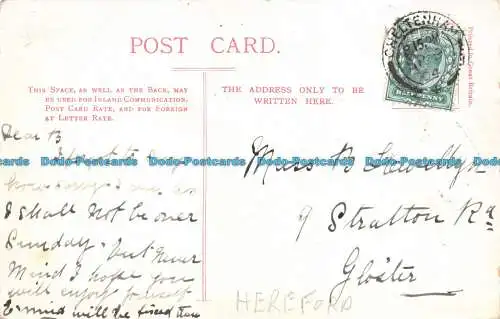 POST CARD.
THIS SPACE, AS WELL AS THE BACK, MAY
BE USED FOR INLAND COMMUNICATION;
POST CARD RATE, AND FOR FOREIGN
AT LETTER RATE.
THE ADDRESS ONLY TO BE
WRITTEN HERE.
Printed in Great Britain.
CHELTENHAM
HALFPENNY
Dear B
how sorry I am as
I shall not be over
Sunday - but never
Mind I hope you
will enjoy yourself
will be
Miss B Llewellyn
9 Stratton Rd
Gloster
HEREFORD
Dodo-Postcards Dodo-Postcards Dodo-Postcards Dodo-Postcards Dodo-Postcards Dodo-Postcards